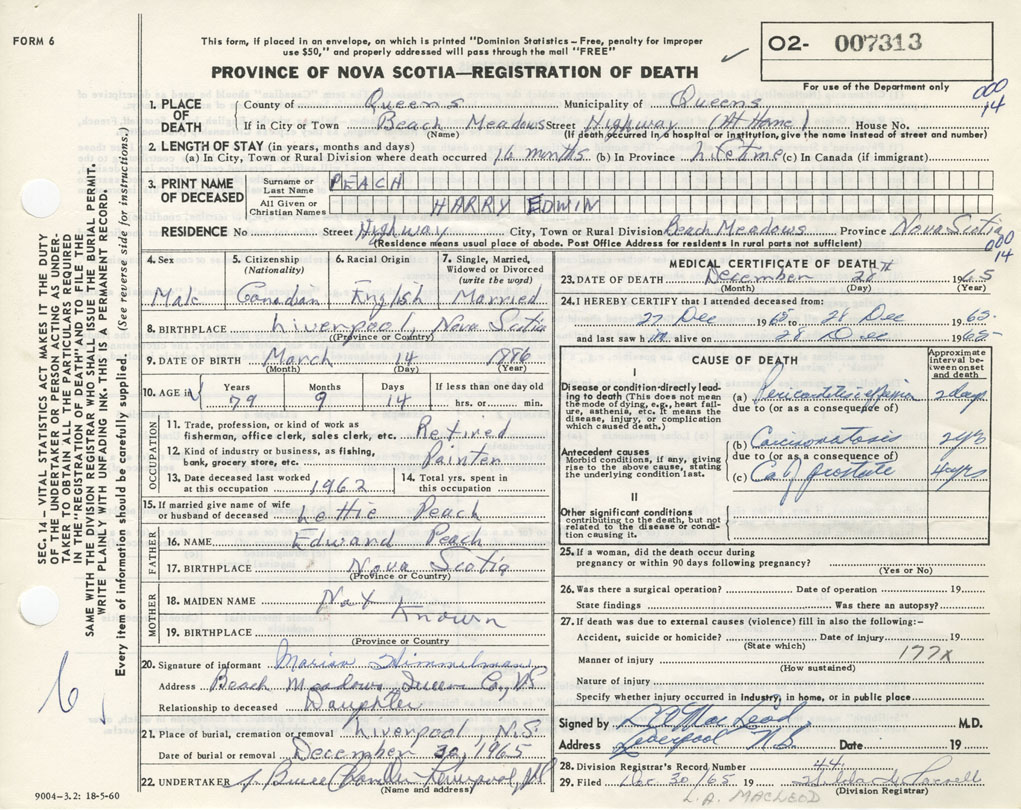 FORM 6
This form, if placed in an envelope, on which is printed "Dominion Statistics - Free, penalty for improper
use $50," and properly addressed will pass through the mail "FREE"
O2- 007313
For use of the Department only
PROVINCE OF NOVA SCOTIA—REGISTRATION OF DEATH
000
14
1. PLACE OF DEATH
County of Queens Municipality of Queens
If in City or Town Beach Meadows Street Highway (At Home) House No.
(Name) (If death occurred in a hospital or institution, give the name instead of street and number)
2. LENGTH OF STAY (in years, months and days)
(a) In City, Town or Rural Division where death occurred 16 months (b) In Province Lifetime (c) In Canada (if immigrant)
3. PRINT NAME OF DECEASED
Surname or Last Name PEACH
All Given or Christian Names HARRY EDWIN
RESIDENCE No Street Highway City, Town or Rural Division Beach Meadows Province Nova Scotia
(Residence means usual place of abode. Post Office Address for residents in rural parts not sufficient)
000
14
4. Sex 5. Citizenship (Nationality) 6. Racial Origin 7. Single, Married, Widowed or Divorced (write the word)
Male Canadian English Married
8. BIRTHPLACE Liverpool, Nova Scotia
(Province or Country)
9. DATE OF BIRTH March 14 1886
(Month) (Day) (Year)
10. AGE in Years Months Days If less than one day old
79 9 14 hrs. or min.
OCCUPATION
11. Trade, profession, or kind of work as
fisherman, office clerk, sales clerk, etc. Retired
12. Kind of industry or business, as fishing,
bank, grocery store, etc. Painter
13. Date deceased last worked at this occupation 1962 14. Total yrs. spent in this occupation
15. If married give name of wife
or husband of deceased Lottie Peach
FATHER
16. NAME Edward Peach
17. BIRTHPLACE Nova Scotia
(Province or Country)
MOTHER
18. MAIDEN NAME Not Known
19. BIRTHPLACE
(Province or Country)
20. Signature of informant Marian Himmelman
Address Beach Meadows, Queens Co., NS
Relationship to deceased Daughter
21. Place of burial, cremation or removal Liverpool, N.S.
Date of burial or removal December 30, 1965
22. UNDERTAKER Liverpool, NS
(Name and address)
9004-3.2: 18-5-60
MEDICAL CERTIFICATE OF DEATH
23. DATE OF DEATH December 28th 1965
(Month) (Day) (Year)
24. I HEREBY CERTIFY that I attended deceased from:
27 Dec 1965 to 28 Dec 1965
and last saw him alive on 28 Dec 1965
CAUSE OF DEATH
Approximate interval between onset and death
I
Disease or condition directly leading
to death (This does not mean
the mode of dying, e.g., heart failure,
asthenia, etc. It means the
disease, injury, or complication
which caused death.)
(a) Pericarditis effusion 2 days
due to (or as a consequence of)
(b) Carcinomatosis 2 yrs
Antecedent causes
Morbid conditions, if any, giving
rise to the above cause, stating
the underlying condition last.
due to (or as a consequence of)
(c) Ca of prostate 4 yrs
II
Other significant conditions
contributing to the death, but not
related to the disease or condition
causing it.
25. If a woman, did the death occur during
pregnancy or within 90 days following pregnancy?
(Yes or No)
26. Was there a surgical operation? Date of operation 19
State findings Was there an autopsy?
27. If death was due to external causes (violence) fill in also the following:-
Accident, suicide or homicide? Date of injury 19
(State which)
Manner of injury 177X
(How sustained)
Nature of injury
Specify whether injury occurred in industry, in home, or in public place
Signed by L A MacLeod M.D.
Address Liverpool N.S. Date 19
28. Division Registrar's Record Number 44
29. Filed Dec. 30/65 19 Hilda
(Division Registrar)
L.A. MACLEOD
SEC. 14 — VITAL STATISTICS ACT MAKES IT THE DUTY
OF THE UNDERTAKER OR PERSON ACTING AS UNDERTAKER
TO OBTAIN ALL THE PARTICULARS REQUIRED
IN THE "REGISTRATION OF DEATH" AND TO FILE THE
SAME WITH THE DIVISION REGISTRAR WHO SHALL ISSUE THE BURIAL PERMIT.
WRITE PLAINLY WITH UNFADING INK. THIS IS A PERMANENT RECORD.
Every item of information should be carefully supplied. (See reverse side for instructions.)
6